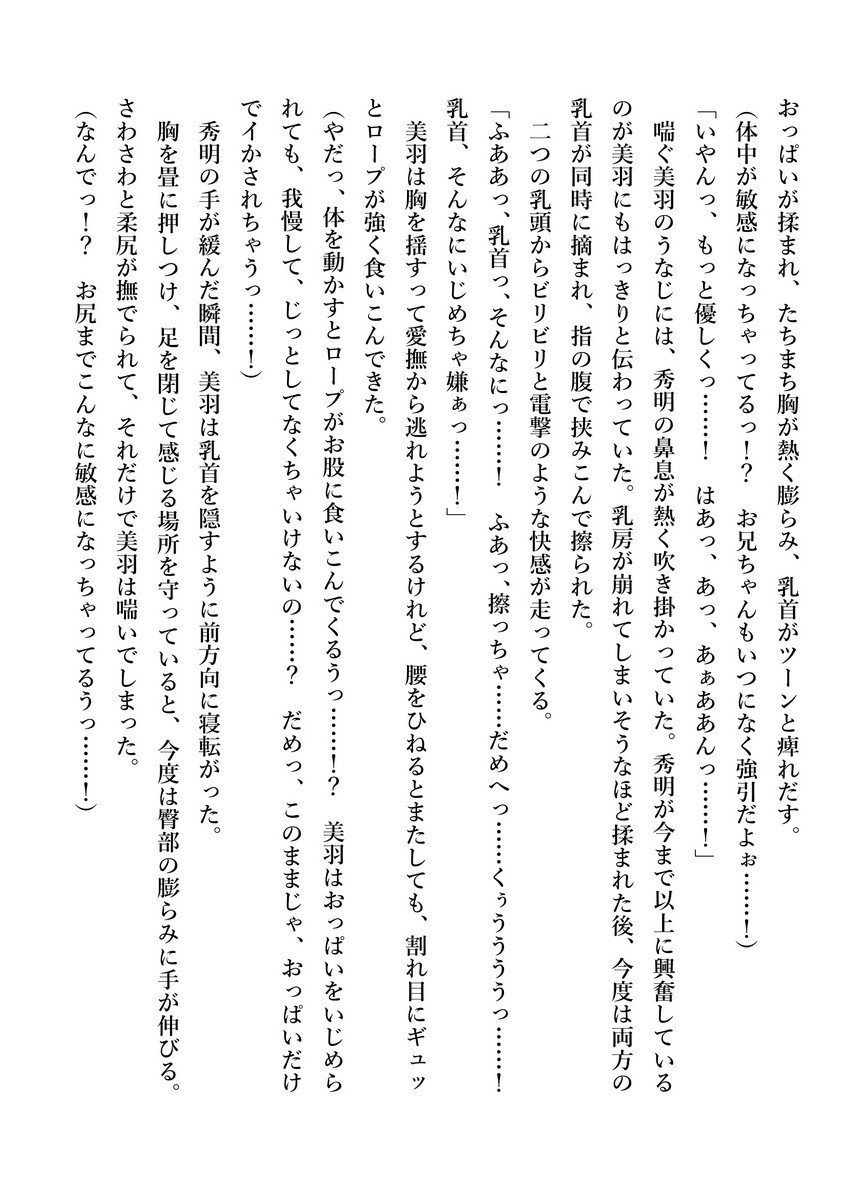 おっぱいが揉まれ、たちまち胸が熱く膨らみ、乳首がツーンと痺れだす。
(体中が敏感になっちゃってるっ!?　お兄ちゃんもいつになく強引だよぉ……!)
「いやんっ、もっと優しくっ……!　はあっ、あっ、あぁああんっ……!」
喘ぐ美羽のうなじには、秀明の鼻息が熱く吹き掛かっていた。秀明が今まで以上に興奮している
のが美羽にもはっきりと伝わっていた。乳房が崩れてしまいそうなほど揉まれた後、今度は両方の
乳首が同時に摘まれ、指の腹で挟みこんで擦られた。
二つの乳頭からビリビリと電撃のような快感が走ってくる。
「ふああっ、乳首っ、そんなにっ……!　ふあっ、擦っちゃ……だめへっ……くぅうううっ……!
乳首、そんなにいじめちゃ嫌ぁっ……!」
美羽は胸を揺すって愛撫から逃れようとするけれど、腰をひねるとまたしても、割れ目にギュッ
とロープが強く食いこんできた。
(やだっ、体を動かすとロープがお股に食いこんでくるうっ……!?　美羽はおっぱいをいじめら
れても、我慢して、じっとしてなくちゃいけないの……?　だめっ、このままじゃ、おっぱいだけ
でイかされちゃうっ……!)
秀明の手が緩んだ瞬間、美羽は乳首を隠すように前方向に寝転がった。
胸を畳に押しつけ、足を閉じて感じる場所を守っていると、今度は臀部の膨らみに手が伸びる。
さわさわと柔尻が撫でられて、それだけで美羽は喘いでしまった。
(なんでっ!?　お尻までこんなに敏感になっちゃってるうっ……!)